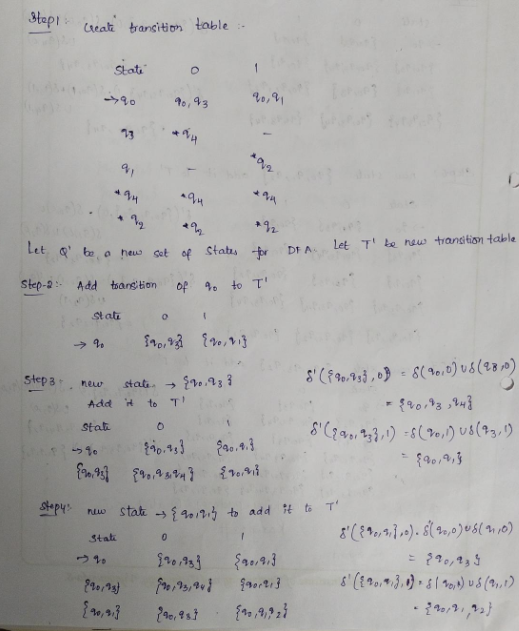 Step1 Create transition table :-
State 0 1
→q0 q0,q3 q0,q1
q3 *q4 -
q1 - *q2
*q4 *q4 *q4
*q2 *q2 *q2
Let Q' be a new set of states for DFA. Let T' be new transition table
Step-2:- Add transition of q0 to T'
State 0 1
→q0 {q0,q3} {q0,q1}
Step3: new state → {q0,q3}
Add it to T'
State 0 1
→q0 {q0,q3} {q0,q1}
{q0,q3} {q0,q3,q4} {q0,q1}
δ'({q0,q3},0) = δ(q0,0)∪δ(q3,0)
= {q0,q3,q4}
δ'({q0,q3},1) = δ(q0,1)∪δ(q3,1)
= {q0,q1}
Step4: new state → {q0,q1} to add it to T'
State 0 1
→q0 {q0,q3} {q0,q1}
{q0,q3} {q0,q3,q4} {q0,q1}
{q0,q1} {q0,q3} {q0,q1,q2}
δ'({q0,q1},0) = δ(q0,0)∪δ(q1,0)
= {q0,q3}
δ'({q0,q1},1) = δ(q0,1)∪δ(q1,1)
= {q0,q1,q2}